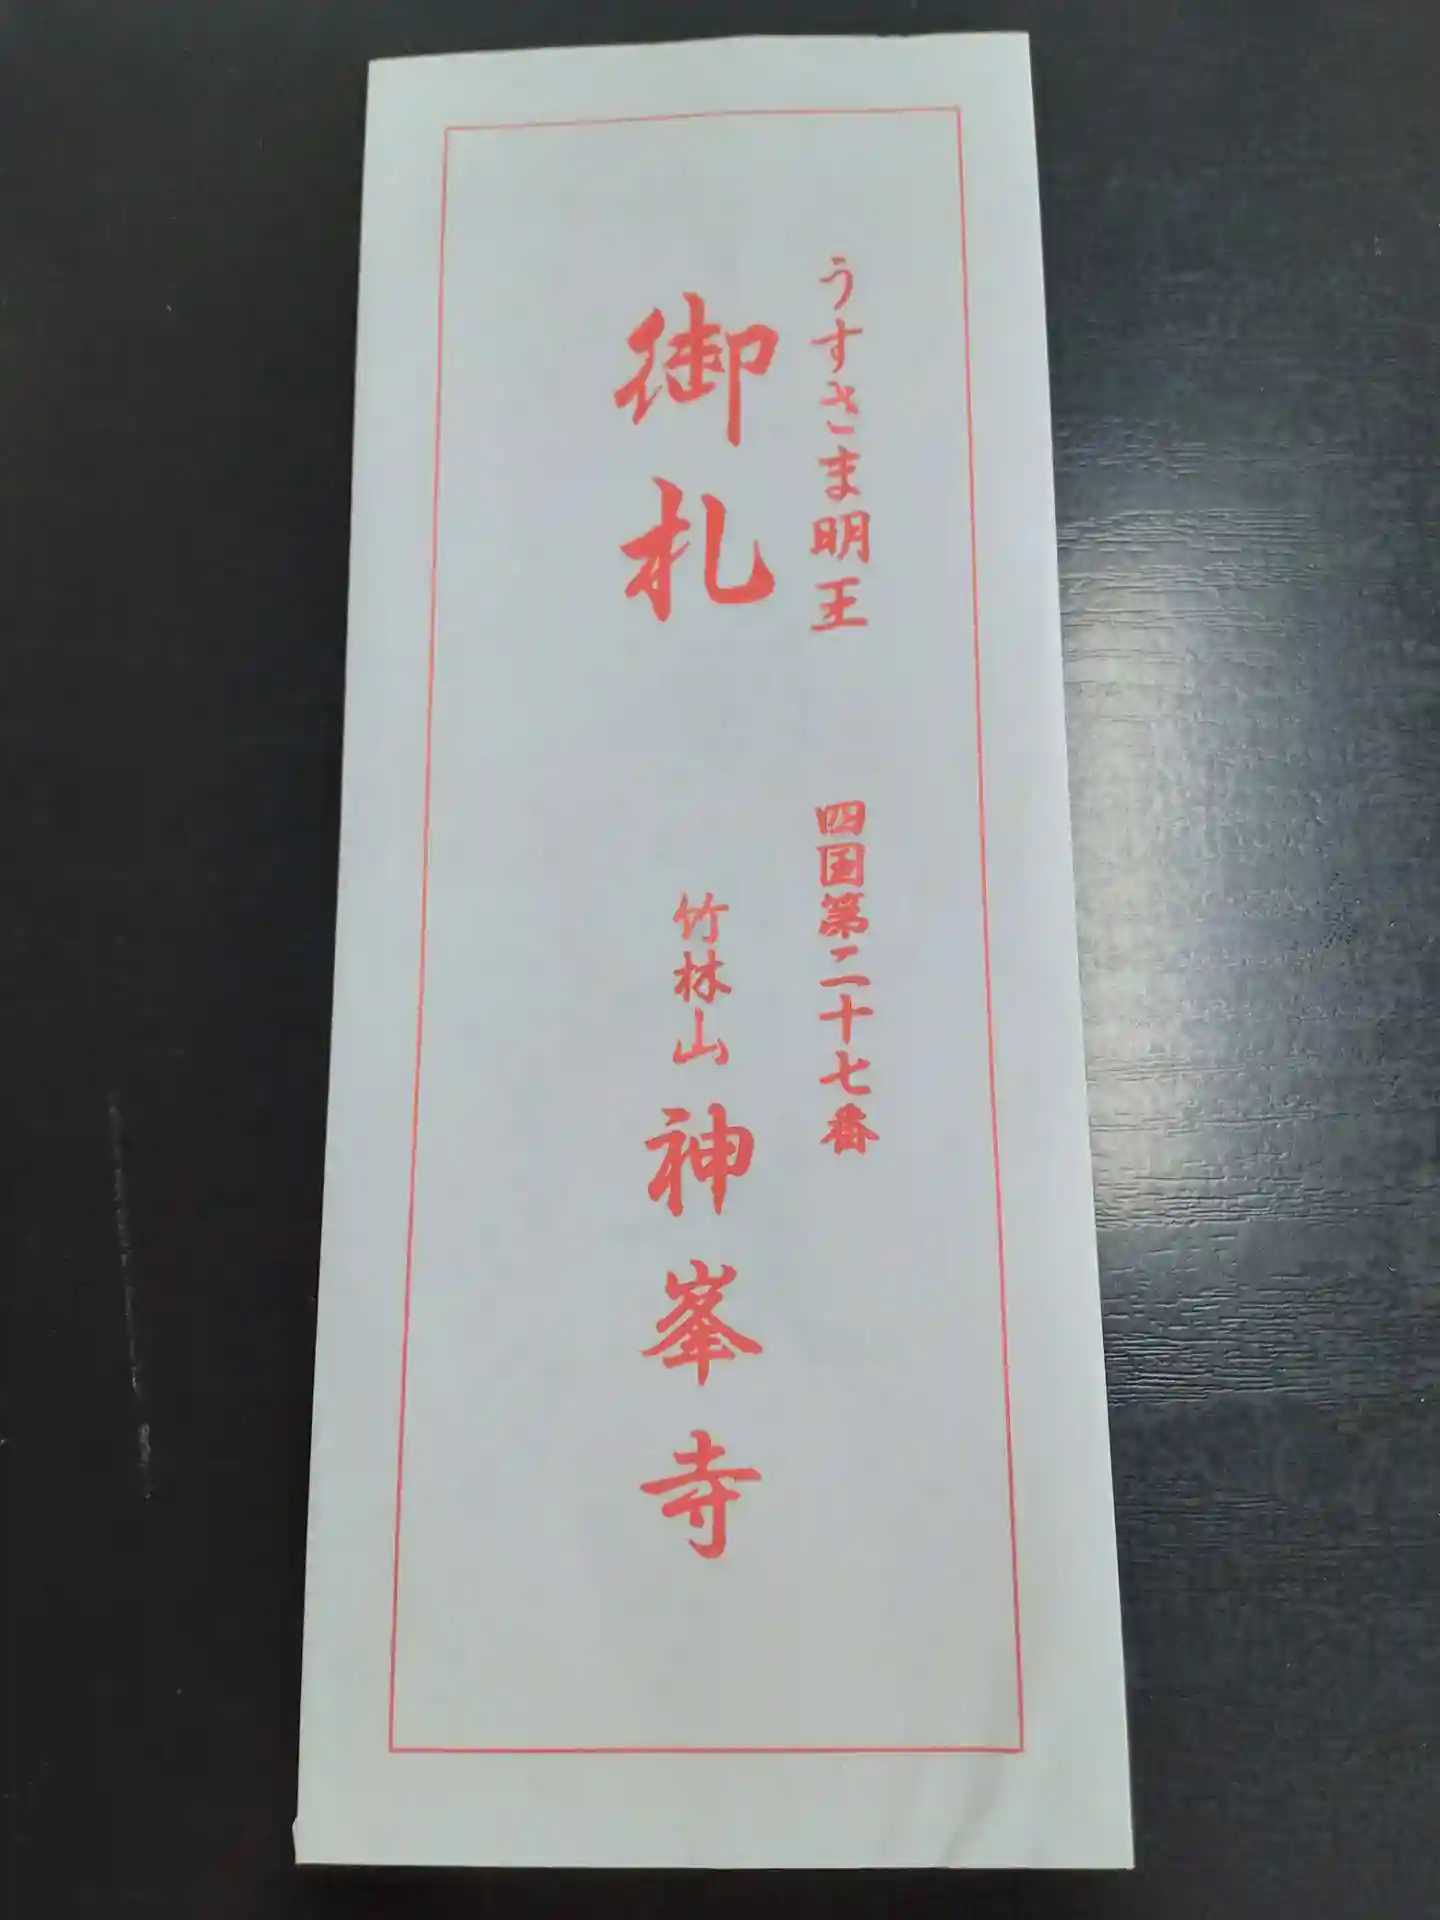 うすさま明王
四国第二十七番
御札
竹林山 神峯寺